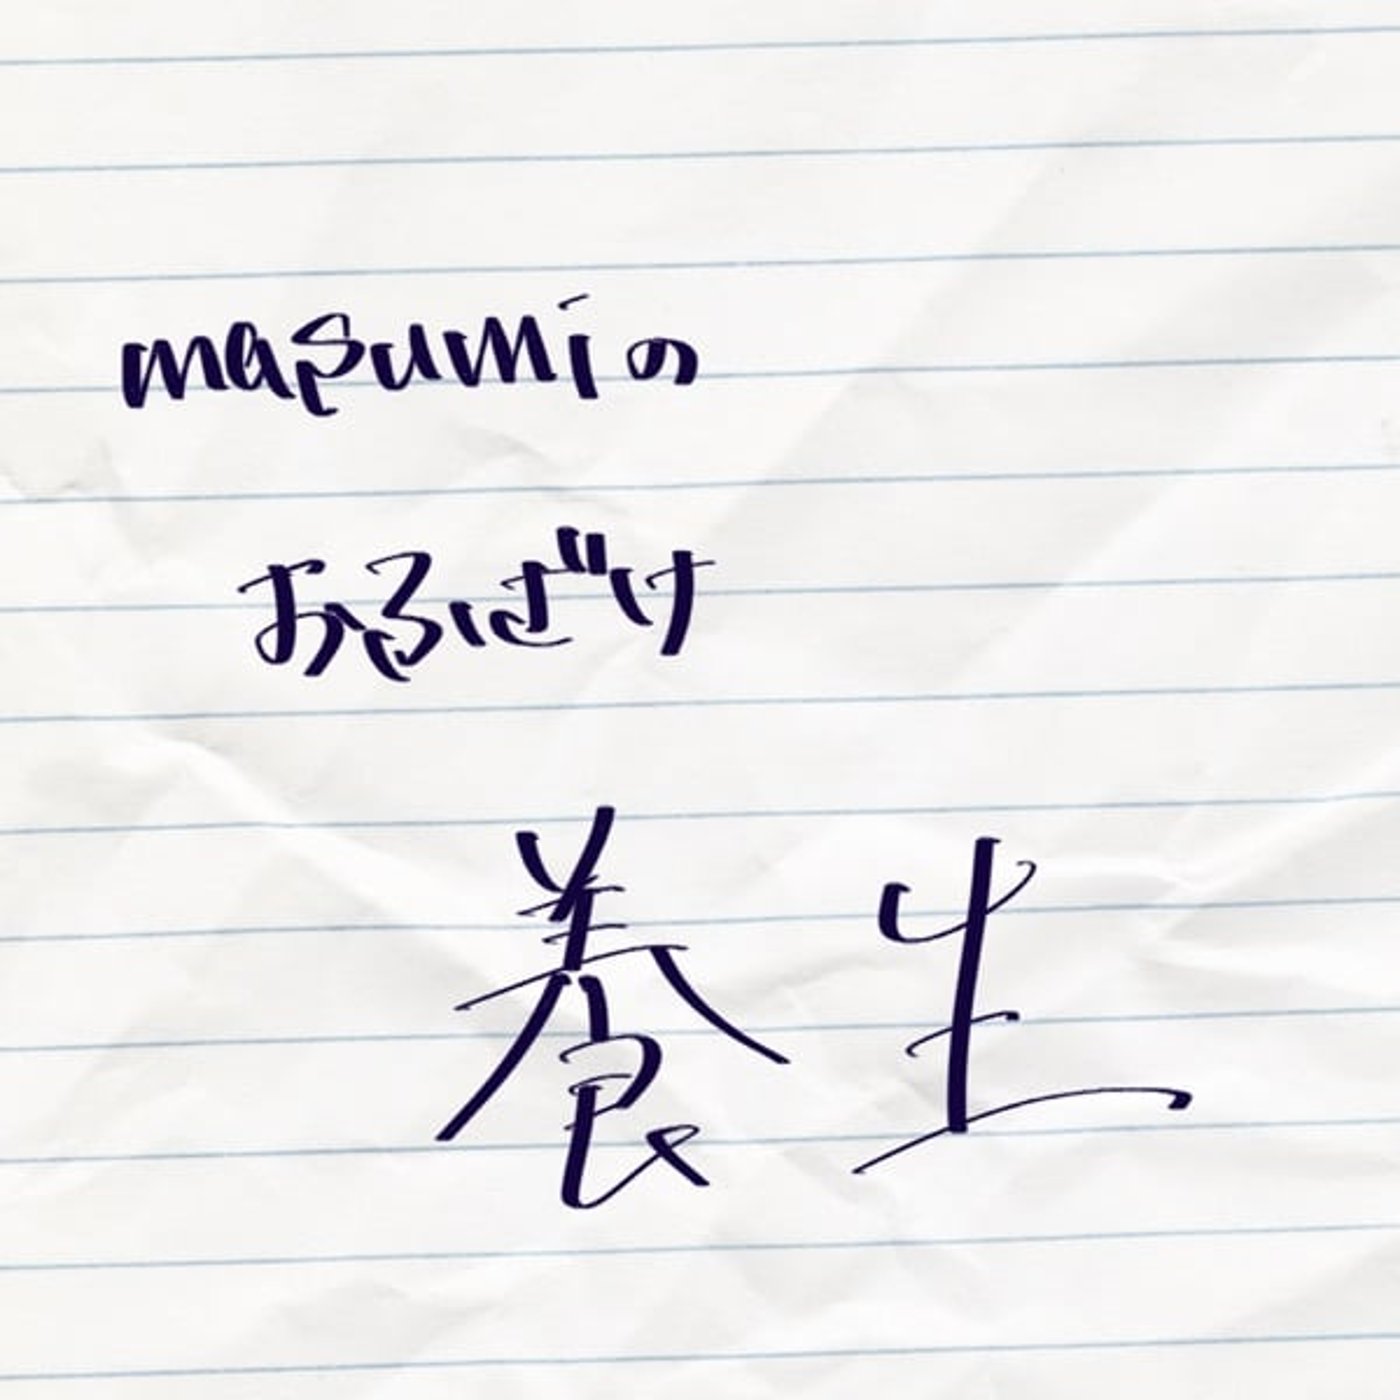 masumiの
おふざけ
養生